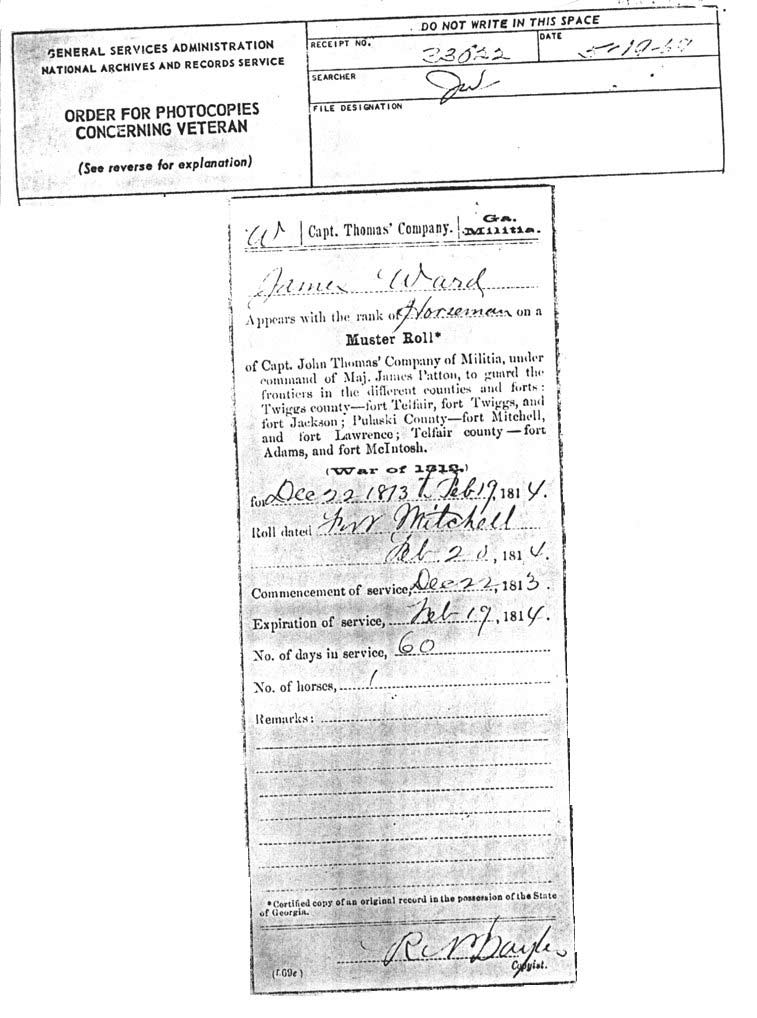 DO NOT WRITE IN THIS SPACE
GENERAL SERVICES ADMINISTRATION
NATIONAL ARCHIVES AND RECORDS SERVICE
ORDER FOR PHOTOCOPIES
CONCERNING VETERAN
(See reverse for explanation)
RECEIPT NO.
DATE
SEARCHER
FILE DESIGNATION
W Capt. Thomas' Company. Ga. Militia.
James Ward
Appears with the rank of Horseman on a
Muster Roll*
of Capt. John Thomas' Company of Militia, under
command of Maj. James Patton, to guard the
frontiers in the different counties and forts:
Twiggs county—fort Telfair, fort Twiggs, and
fort Jackson; Pulaski County—fort Mitchell,
and fort Lawrence; Telfair county—fort
Adams, and fort McIntosh.
(War of 1812.)
for Dec 22 1813 to Feb 19, 1814.
Roll dated Fort Mitchell
Feb 20, 1814.
Commencement of service, Dec 22, 1813.
Expiration of service, Feb 19, 1814.
No. of days in service, 60
No. of horses, 1
Remarks:
*Certified copy of an original record in the possession of the State
of Georgia.
Copyist.